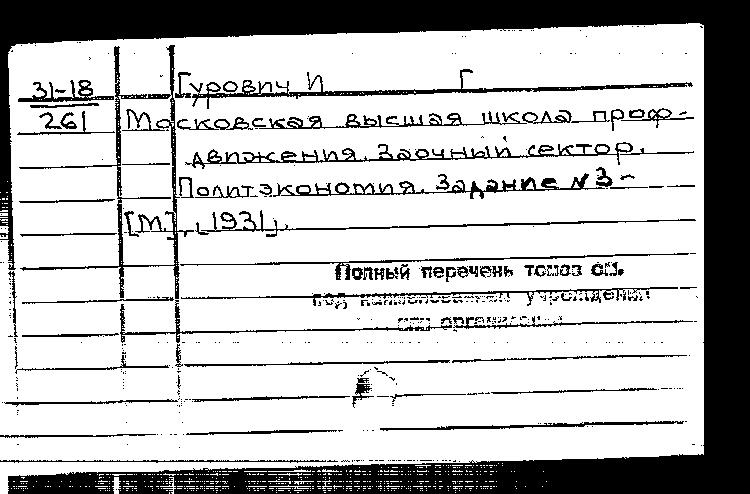 31-18 Гурович, И Г
261 Московская высшая школа проф-
движения. Заочный сектор.
Политэкономия. Задание №3-
[М.], [1931].
Полный перечень томов см.
под наименованием учреждения
или организации